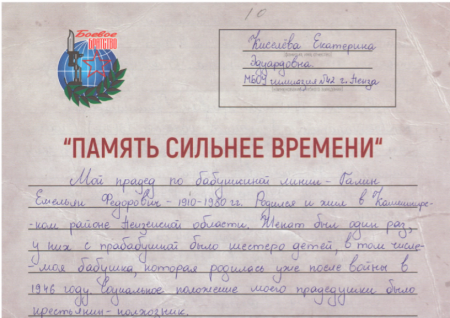 10
Боевое
БРАТСТВО
Киселёва Екатерина
Эдуардовна.
МБОУ гимназия №42 г. Пенза
"ПАМЯТЬ СИЛЬНЕЕ ВРЕМЕНИ"
Мой прадед по бабушкиной линии - Галин
Емельян Федорович - 1910-1980 гг. Родился и жил в
ком районе Пензенской области. Женат был один раз,
у них с прабабушкой было шестеро детей, в том числе-
-моя бабушка, которая родилась уже после войны в
1946 году. Социальное положение моего прадедушки было
крестьянин - колхозник.